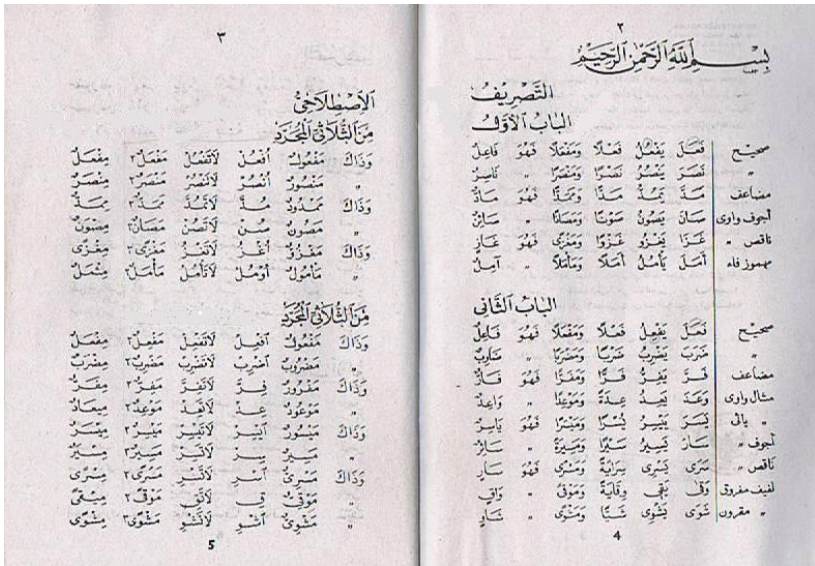 ٢
بِسْمِ اللهِ الرَّحْمٰنِ الرَّحِيْمِ
التَّصْرِيْفُ
الْبَابُ الْأَوَّلُ
صحيح فَعَلَ يَفْعُلُ فَعْلًا وَمَفْعَلًا فَهُوَ فَاعِلٌ
" نَصَرَ يَنْصُرُ نَصْرًا وَمَنْصَرًا " نَاصِرٌ
مضاعف مَدَّ يَمُدُّ مَدًّا وَمَمَدًّا فَهُوَ مَادٌّ
أجوف واوى صَانَ يَصُوْنُ صَوْنًا وَمَصَانًا " صَائِنٌ
ناقص " غَزَا يَغْزُو غَزْوًا وَمَغْزًى فَهُوَ غَازٍ
مهموز فاء أَمَلَ يَأْمُلُ أَمَلًا وَمَأْمَلًا " آمِلٌ
الْبَابُ الثَّانِى
صحيح فَعَلَ يَفْعِلُ فَعْلًا وَمَفْعَلًا فَهُوَ فَاعِلٌ
" ضَرَبَ يَضْرِبُ ضَرْبًا وَمَضْرَبًا " ضَارِبٌ
مضاعف فَرَّ يَفِرُّ فَرًّا وَمَفَرًّا فَهُوَ فَارٌّ
مثال واوى وَعَدَ يَعِدُ عِدَةً وَمَوْعِدًا " وَاعِدٌ
" يائى يَسَرَ يَيْسِرُ يُسْرًا وَمَيْسَرًا فَهُوَ يَاسِرٌ
أجوف " سَارَ يَسِيْرُ سَيْرًا وَمَسِيْرَةً " سَائِرٌ
ناقص " سَرَى يَسْرِى سِرَايَةً وَمَسْرًى فَهُوَ سَارٍ
لفيف مفروق وَقَى يَقِى وِقَايَةً وَمَوْقًى " وَاقٍ
" مقرون شَوَى يَشْوِى شَيًّا وَمَشْوًى " شَاوٍ
4
٣
الْإِصْطِلَاحِىُّ
مِنَ الثُّلَاثِىِّ الْمُجَرَّدِ
وَذَاكَ مَفْعُوْلٌ اُفْعُلْ لَاتَفْعُلْ مَفْعَلٌ٢ مِفْعَلٌ
" مَنْصُوْرٌ اُنْصُرْ لَاتَنْصُرْ مَنْصَرٌ٢ مِنْصَرٌ
وَذَاكَ مَمْدُوْدٌ مُدَّ لَاتَمُدَّ مَمَدٌّ٢ مِمَدٌّ
" مَصُوْنٌ صُنْ لَاتَصُنْ مَصَانٌ٢ مِصْوَنٌ
وَذَاكَ مَغْزُوٌّ اُغْزُ لَاتَغْزُ مَغْزًى٢ مِغْزًى
" مَأْمُوْلٌ اُوْمُلْ لَاتَأْمُلْ مَأْمَلٌ٢ مِئْمَلٌ
مِنَ الثُّلَاثِىِّ الْمُجَرَّدِ
وَذَاكَ مَفْعُوْلٌ اِفْعِلْ لَاتَفْعِلْ مَفْعِلٌ٢ مِفْعَلٌ
" مَضْرُوْبٌ اِضْرِبْ لَاتَضْرِبْ مَضْرِبٌ٢ مِضْرَبٌ
وَذَاكَ مَفْرُوْرٌ فِرَّ لَاتَفِرَّ مَفِرٌّ٢ مِفَرٌّ
" مَوْعُوْدٌ عِدْ لَاتَعِدْ مَوْعِدٌ٢ مِيْعَادٌ
وَذَاكَ مَيْسُوْرٌ اِيْسِرْ لَاتَيْسِرْ مَيْسِرٌ٢ مِيْسَرٌ
" مَسِيْرٌ سِرْ لَاتَسِرْ مَسِيْرٌ٢ مِسْيَرٌ
وَذَاكَ مَسْرِىٌّ اِسْرِ لَاتَسْرِ مَسْرًى٢ مِسْرًى
" مَوْقِىٌّ قِ لَاتَقِ مَوْقًى٢ مِيْقًى
" مَشْوِىٌّ اِشْوِ لَاتَشْوِ مَشْوًى٢ مِشْوًى
5